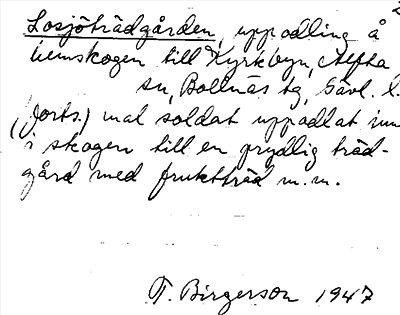 Losjöträdgården, uppodling å
hemskogen till Kyrkbyn, Alfta
sn, Bollnäs tg, Gävl. l.
(Jorts.) mal soldat uppodlat inne
i skogen till en prydlig träd-
gård med fruktträd m.m.
T. Birgerson 1947